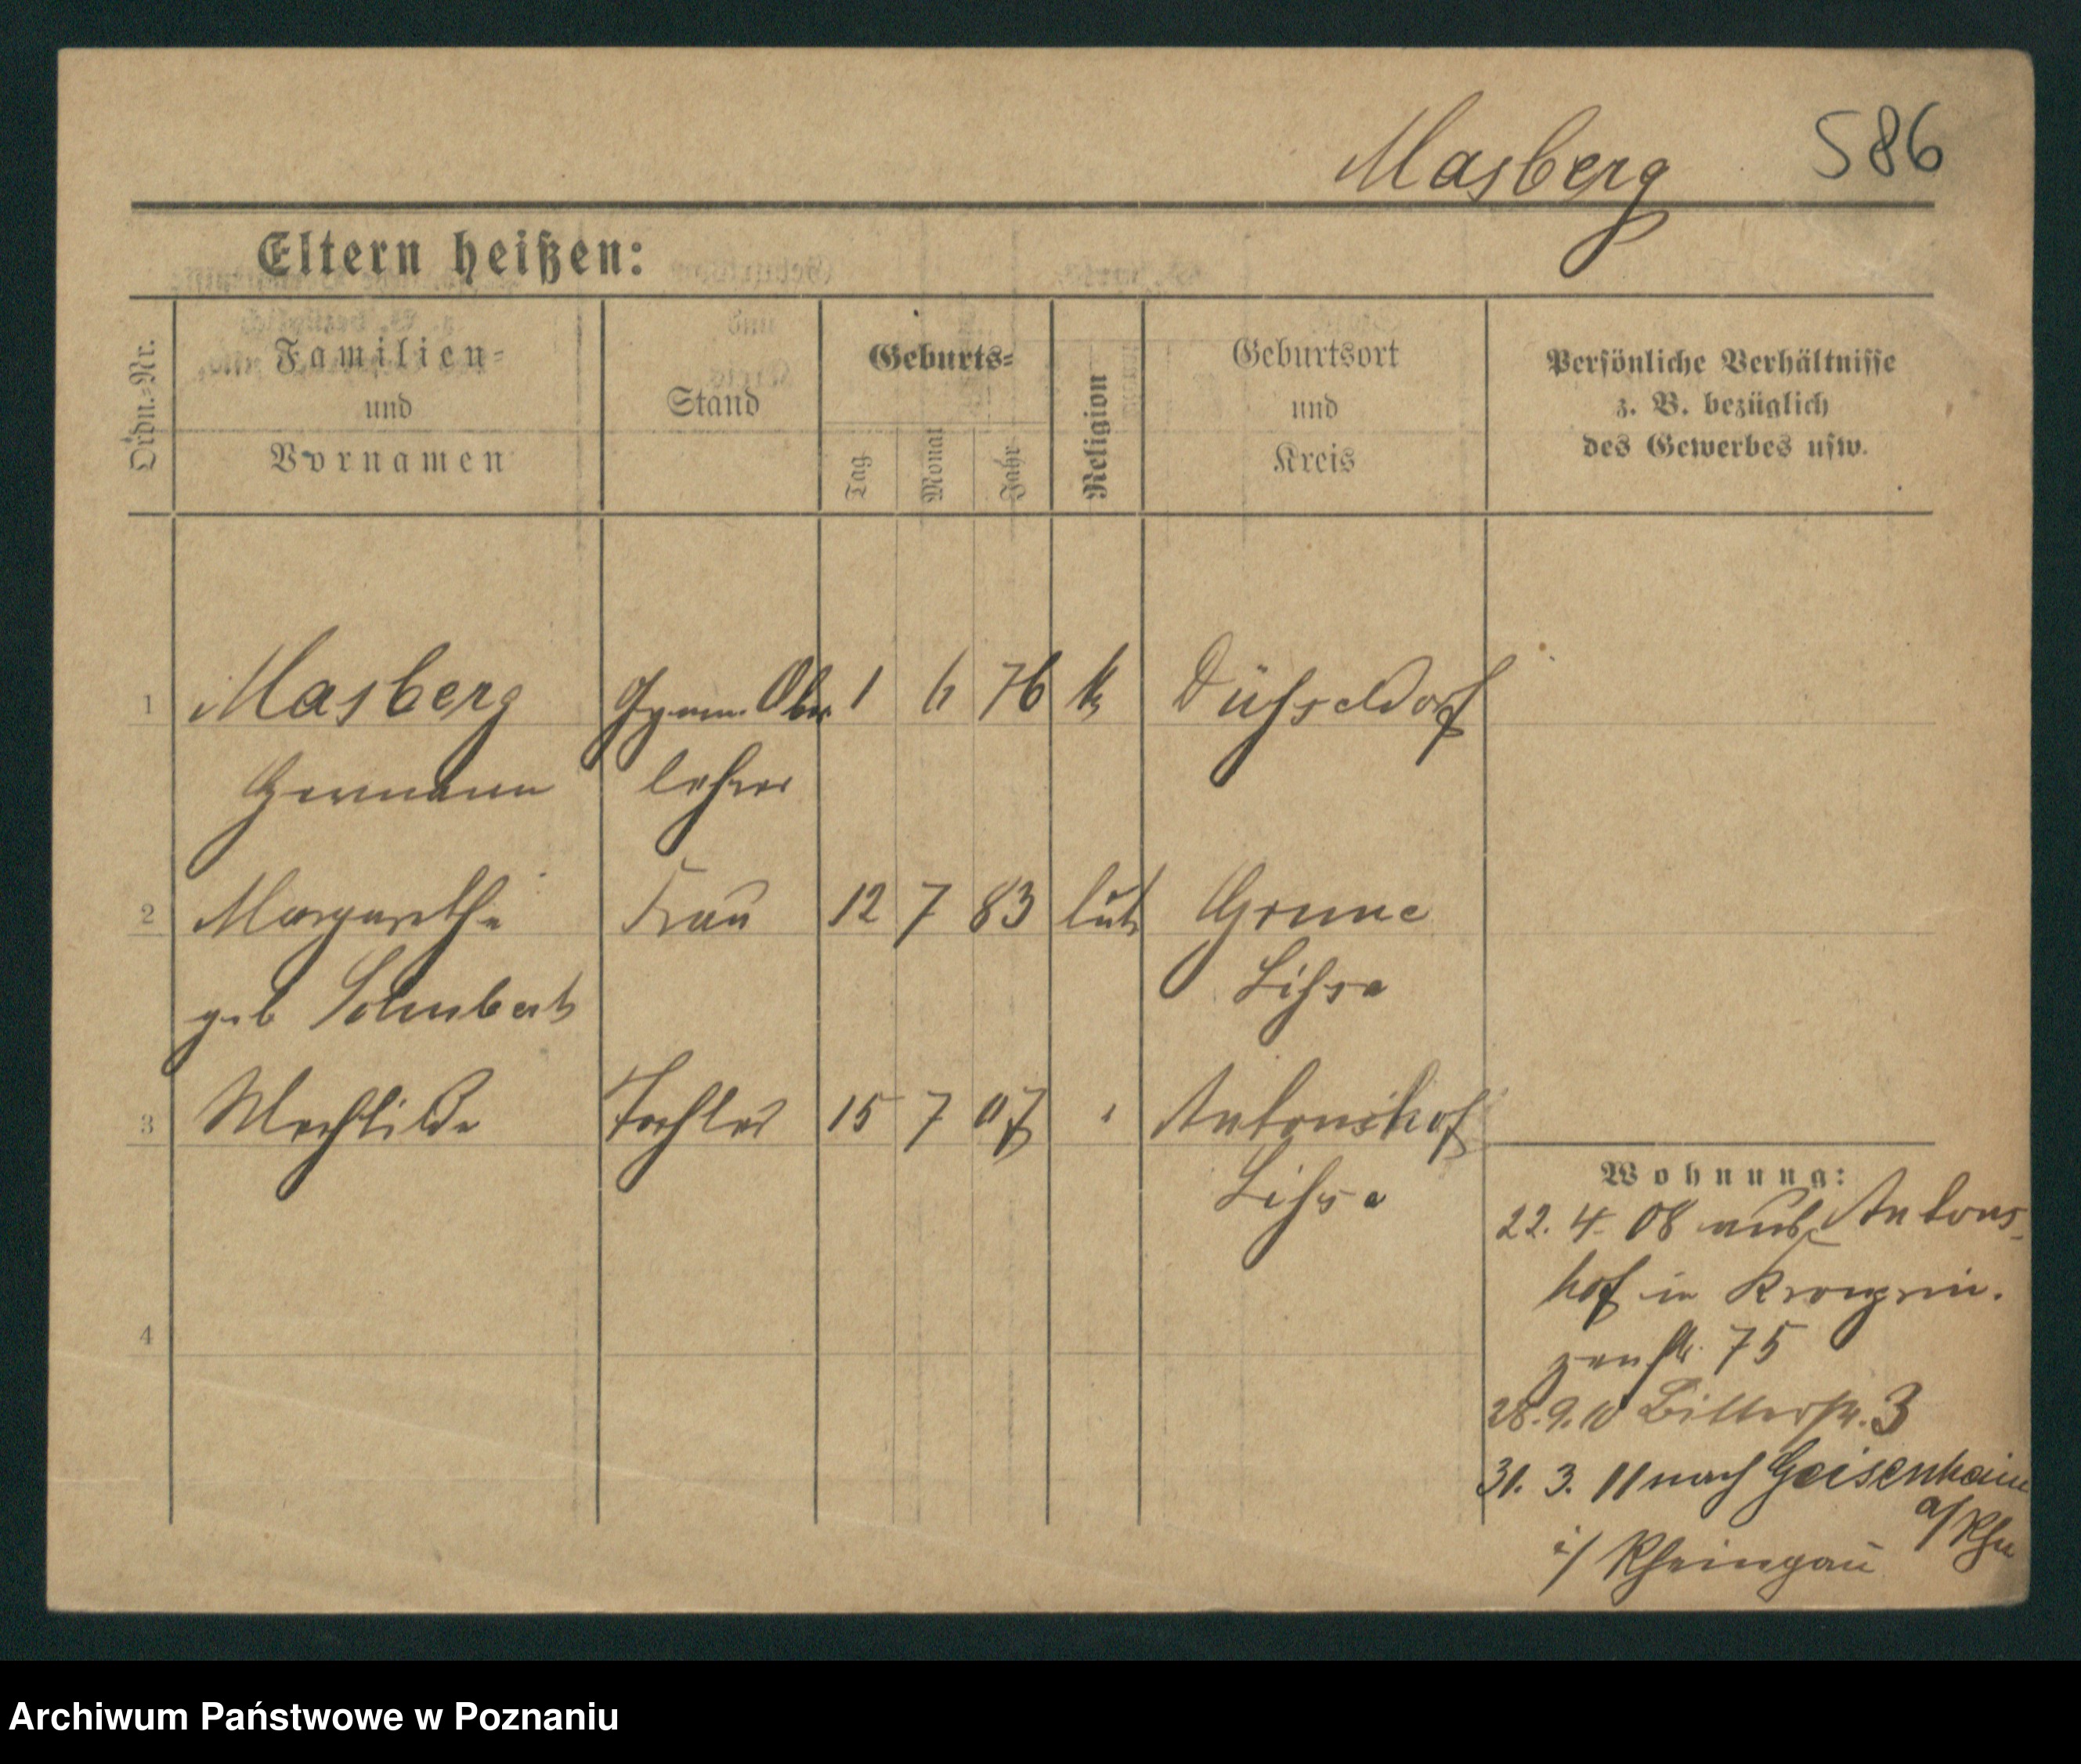 Masberg 586
Eltern heißen:
Ordn.-Nr.
Familien-
und
Vornamen
Stand
Geburts-
Tag
Monat
Jahr
Religion
Geburtsort
und
Kreis
Persönliche Verhältnisse
z. B. bezüglich
des Gewerbes usw.
1 Masberg Gymn. Ober 1 6 76 k Düsseldorf
Hermann lehrer
2 Margarethe Frau 12 7 83 luth Grune
geb Schubert Lissa
3 Mechtilde Tochter 15 7 07 " Antonshof
Lissa
4
Wohnung:
22. 4. 08 aus Antons-
hof in Kronprin-
zenstr. 75
28. 9. 10 Bitterstr. 3
31. 3. 11 nach Geisenheim
a/Rhn
i/ Rheingau
Archiwum Państwowe w Poznaniu